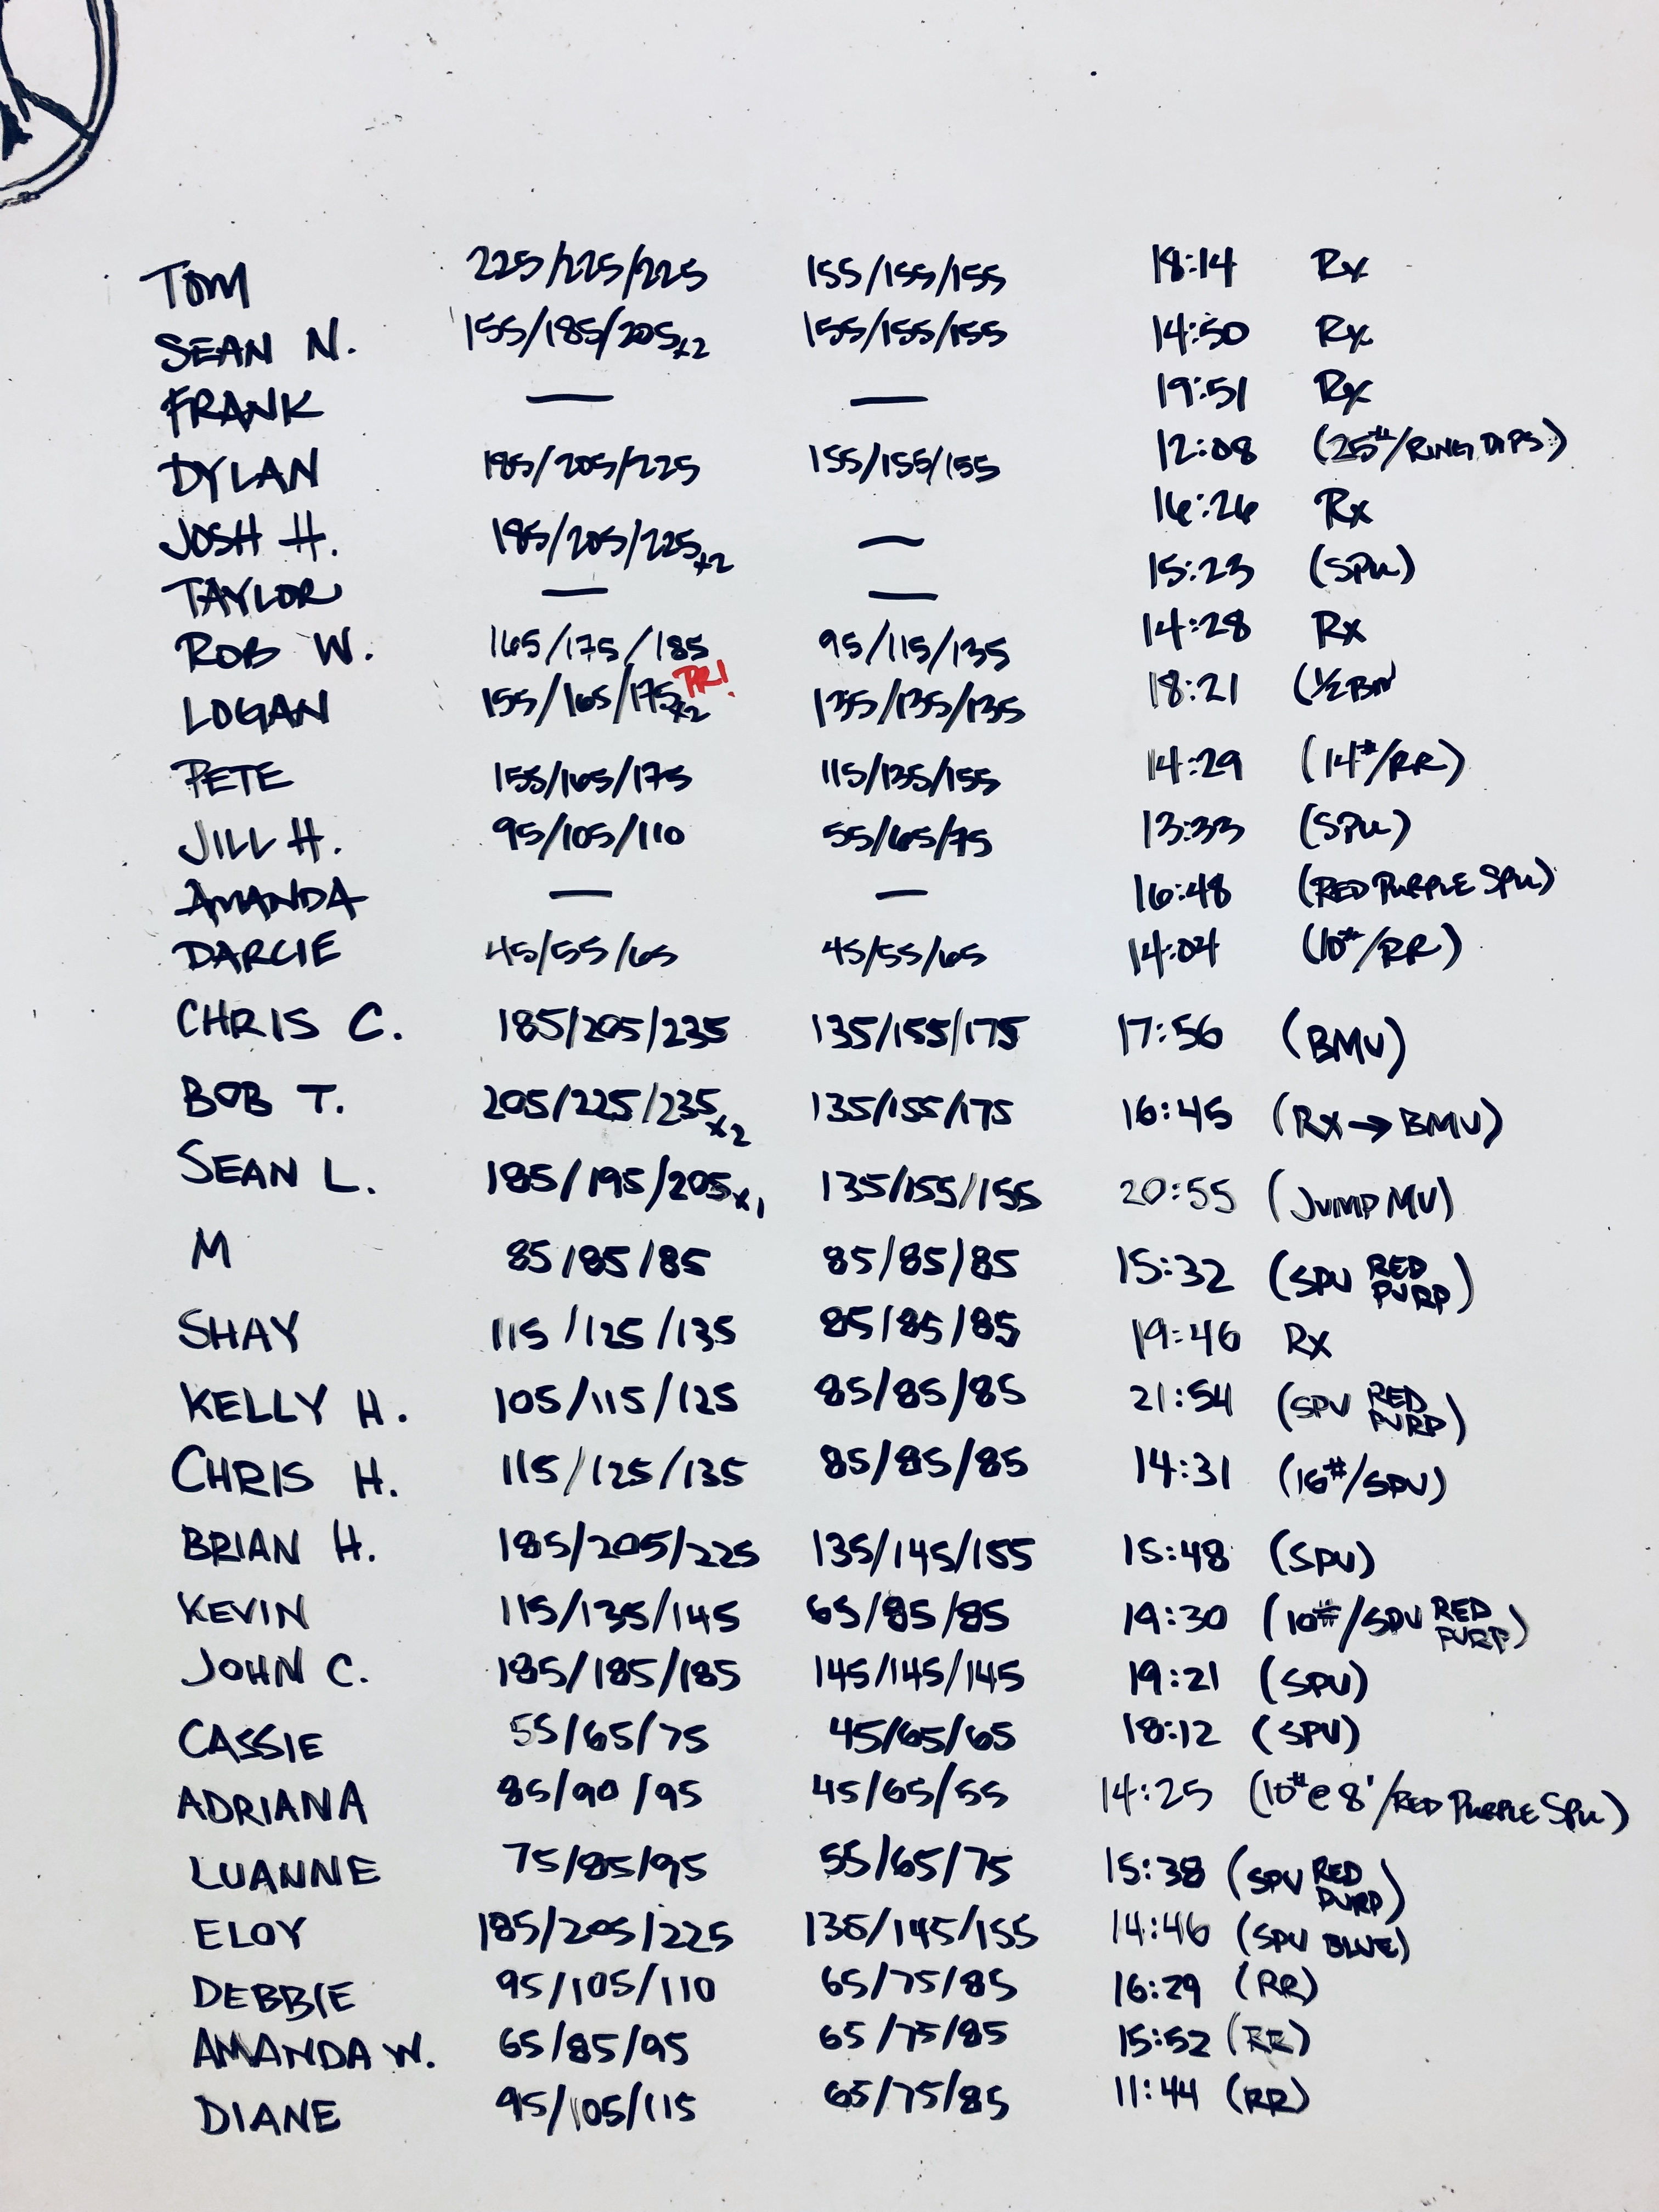 TOM 225/225/225 155/155/155 18:14 Rx
SEAN N. 155/185/205x2 155/155/155 14:50 Rx
FRANK — — 19:51 Rx
DYLAN 185/205/225 155/155/155 12:08 (25#/RING DIPS)
JOSH H. 185/205/225x2 — 16:26 Rx
TAYLOR — — 15:23 (SPU)
ROB W. 165/175/185 95/115/135 14:28 Rx
PR!
LOGAN 155/165/175x2 135/135/135 18:21 (1/2 BM
PETE 155/165/175 115/135/155 14:29 (14#/RR)
JILL H. 95/105/110 55/65/75 13:33 (SPU)
AMANDA — — 16:48 (RED PURPLE SPU)
DARCIE 45/55/65 45/55/65 14:04 (10#/RR)
CHRIS C. 185/205/235 135/155/175 17:56 (BMU)
BOB T. 205/225/235x2 135/155/175 16:45 (RX→BMU)
SEAN L. 185/195/205x1 135/155/155 20:55 (JUMP MU)
M 85/85/85 85/85/85 15:32 (SPU RED PURP)
SHAY 115/125/135 85/85/85 19:46 Rx
KELLY H. 105/115/125 85/85/85 21:54 (SPU RED PURP)
CHRIS H. 115/125/135 85/85/85 14:31 (16#/SPU)
BRIAN H. 185/205/225 135/145/155 15:48 (SPU)
KEVIN 115/135/145 65/85/85 19:30 (10#/SPU RED PURP)
JOHN C. 185/185/185 145/145/145 19:21 (SPU)
CASSIE 55/65/75 45/65/65 18:12 (SPU)
ADRIANA 85/90/95 45/65/55 14:25 (10#@8'/RED PURPLE SPU)
LUANNE 75/85/95 55/65/75 15:38 (SPU RED PURP)
ELOY 185/205/225 135/145/155 14:46 (SPU BLUE)
DEBBIE 95/105/110 65/75/85 16:29 (RR)
AMANDA W. 65/85/95 65/75/85 15:52 (RR)
DIANE 95/105/115 65/75/85 11:44 (RR)